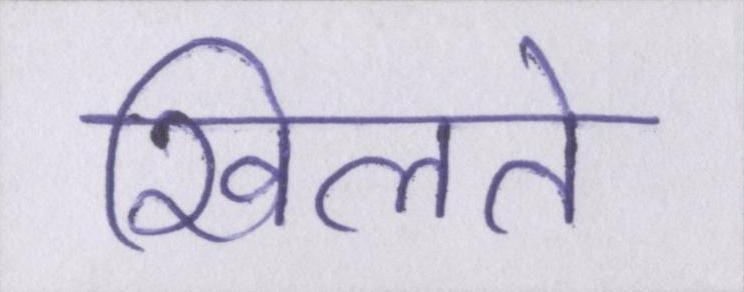 खिलते